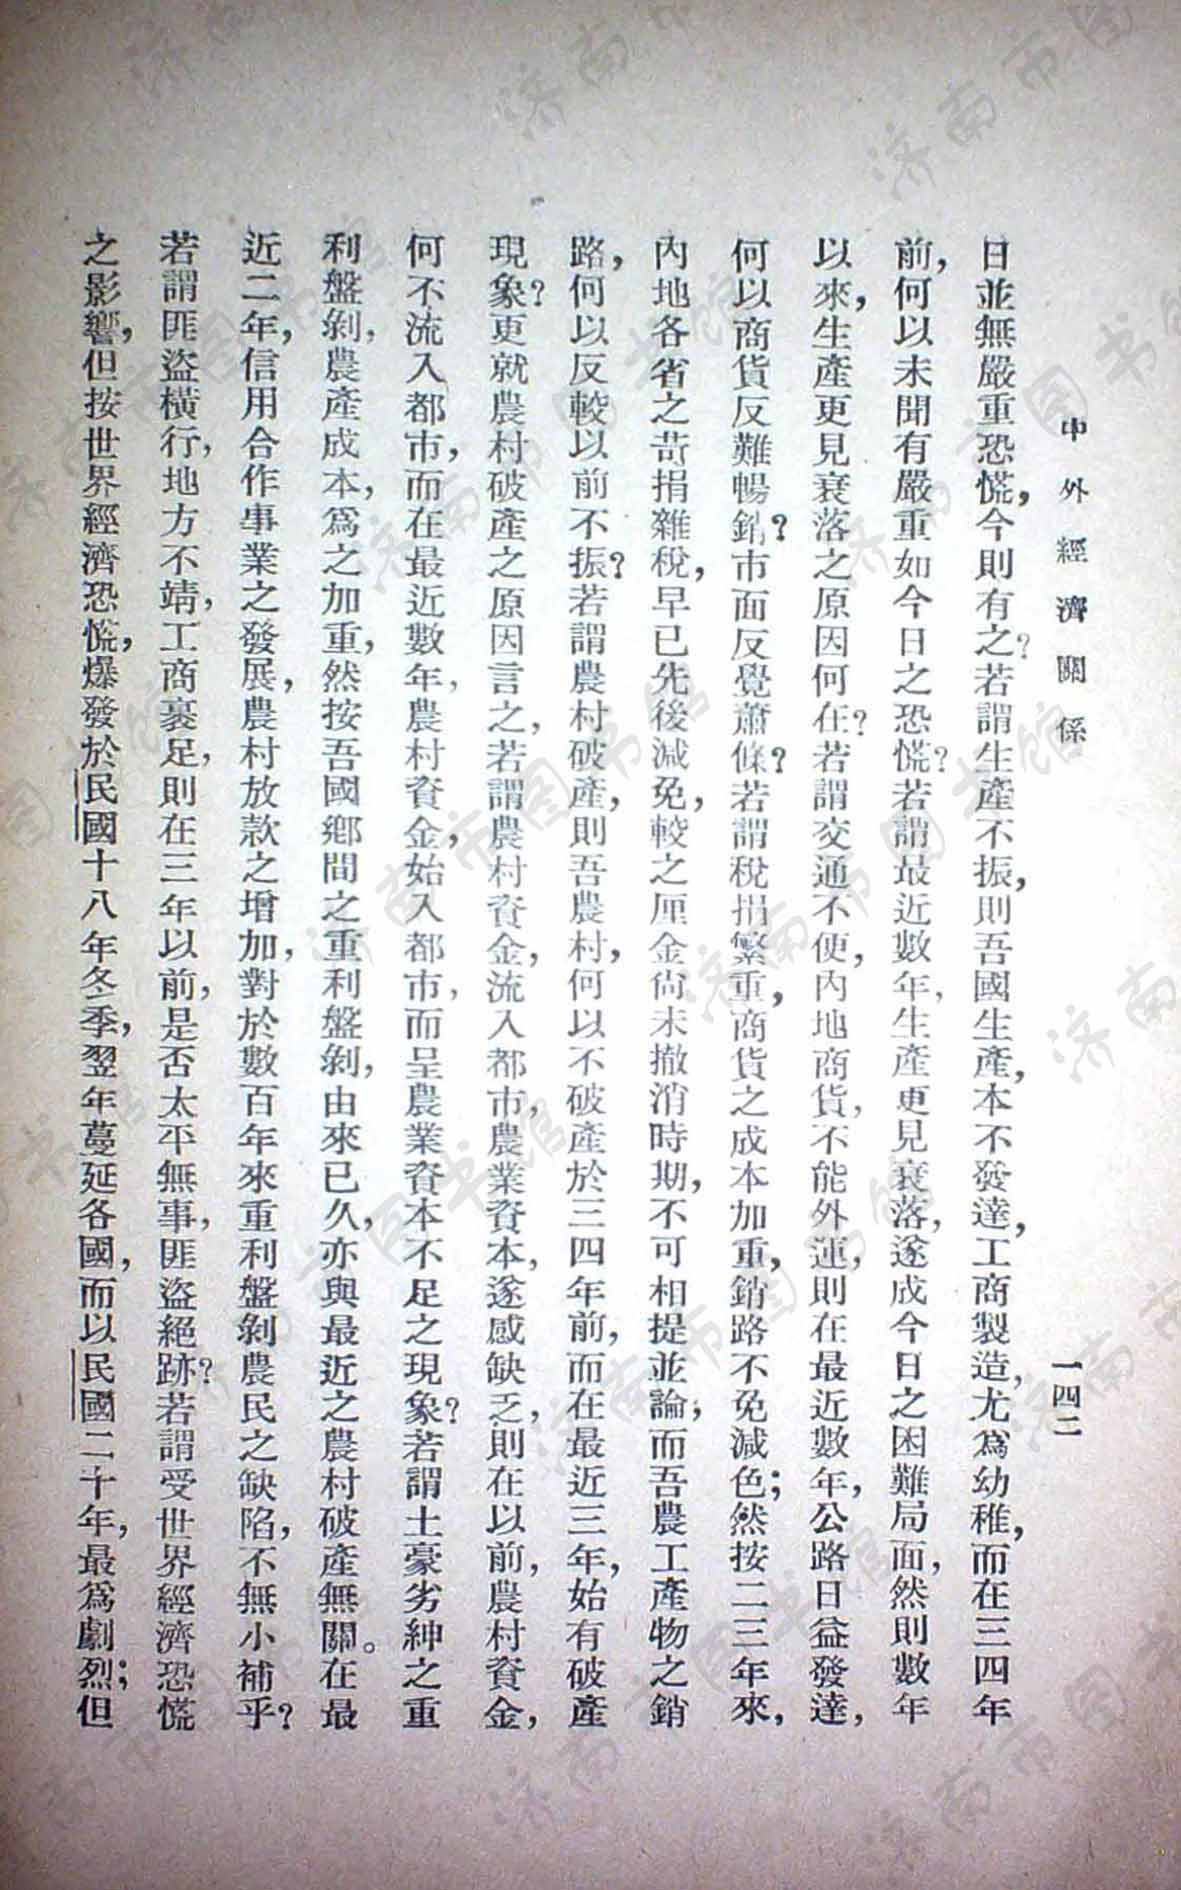 中外經濟關係
一四二
日並無嚴重恐慌，今則有之？若謂生產不振，則吾國生產，本不發達，工商製造，尤爲幼稚，而在三四年
前，何以未聞有嚴重如今日之恐慌？若謂最近數年，生產更見衰落，遂成今日之困難局面，然則數年
以來，生產更見衰落之原因何在？若謂交通不便，內地商貨，不能外運，則在最近數年，公路日益發達，
何以商貨反難暢銷？市面反覺蕭條？若謂稅捐繁重，商貨之成本加重，銷路不免減色；然按二三年來，
內地各省之苛捐雜稅，早已先後減免，較之厘金尙未撤消時期，不可相提並論；而吾農工產物之銷
路，何以反較以前不振？若謂農村破產，則吾農村，何以不破產於三四年前，而在最近三年，始有破產
現象？更就農村破產之原因言之，若謂農村資金，流入都市，農業資本，遂感缺乏，則在以前，農村資金，
何不流入都市，而在最近數年，農村資金，始入都市，而呈農業資本不足之現象？若謂土豪劣紳之重
利盤剝，農產成本，爲之加重，然按吾國鄕間之重利盤剝，由來已久，亦與最近之農村破產無關。在最
近二年，信用合作事業之發展，農村放款之增加，對於數百年來重利盤剝農民之缺陷，不無小補乎？
若謂匪盜橫行，地方不靖，工商裹足，則在三年以前，是否太平無事，匪盜絕跡？若謂受世界經濟恐慌
之影響，但按世界經濟恐慌，爆發於民國十八年冬季，翌年蔓延各國，而以民國二十年，最爲劇烈；但
濟南市图书馆